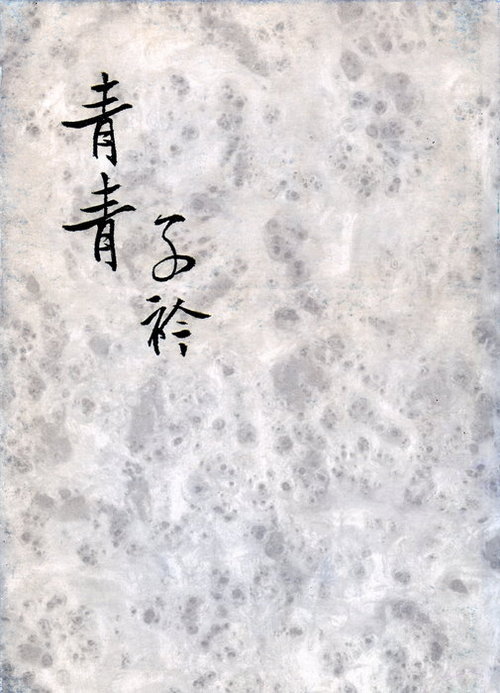 青青
子衿